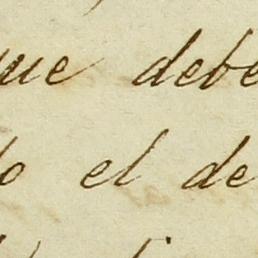 que debe
do el de